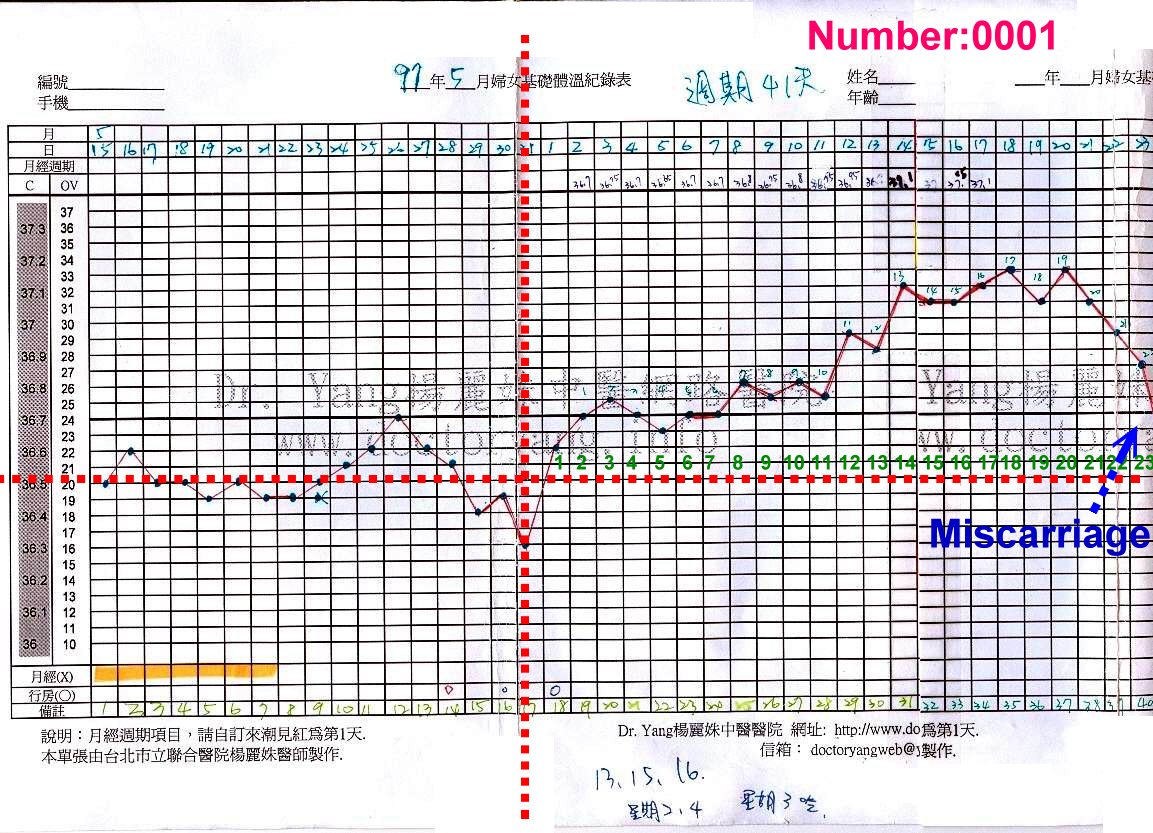 Number:0001
編號
手機
97年5月婦女基礎體溫紀錄表
週期41天
姓名
年齡
年 月婦女基
月 5
日 15 16 17 18 19 20 21 22 23 24 25 26 27 28 29 30 31 1 2 3 4 5 6 7 8 9 10 11 12 13 14 15 16 17 18 19 20 21 22 23
月經週期
C OV
36.7 36.75 36.7 36.65 36.7 36.7 36.8 36.75 36.8 36.75 36.95 37.1 37.1
37
37.3 36
35
37.2 34
33
37.1 32
31
37 30
29
36.9 28
27
36.8 26
25
36.7 24
23
36.6 22
21
36.5 20
19
36.4 18
17
36.3 16
15
36.2 14
13
36.1 12
11
36 10
Dr. Yang楊麗姝中醫
www.doctoryang.info
1 2 3 4 5 6 7 8 9 10 11 12 13 14 15 16 17 18 19 20 21 22 23
Miscarriage
月經(X)
行房(〇)
備註 1 2 3 4 5 6 7 8 9 10 11 12 13 14 15 16 17 18 19 20 21 22 23 25 26 27 28 29 30 31 32 33 34 35 36 37 38 40
說明：月經週期項目，請自訂來潮見紅爲第1天.
本單張由台北市立聯合醫院楊麗姝醫師製作.
Dr. Yang楊麗姝中醫醫院 網址: http://www.do爲第1天.
信箱： doctoryangweb@製作.
13、15、16.
星期2、4 星期3